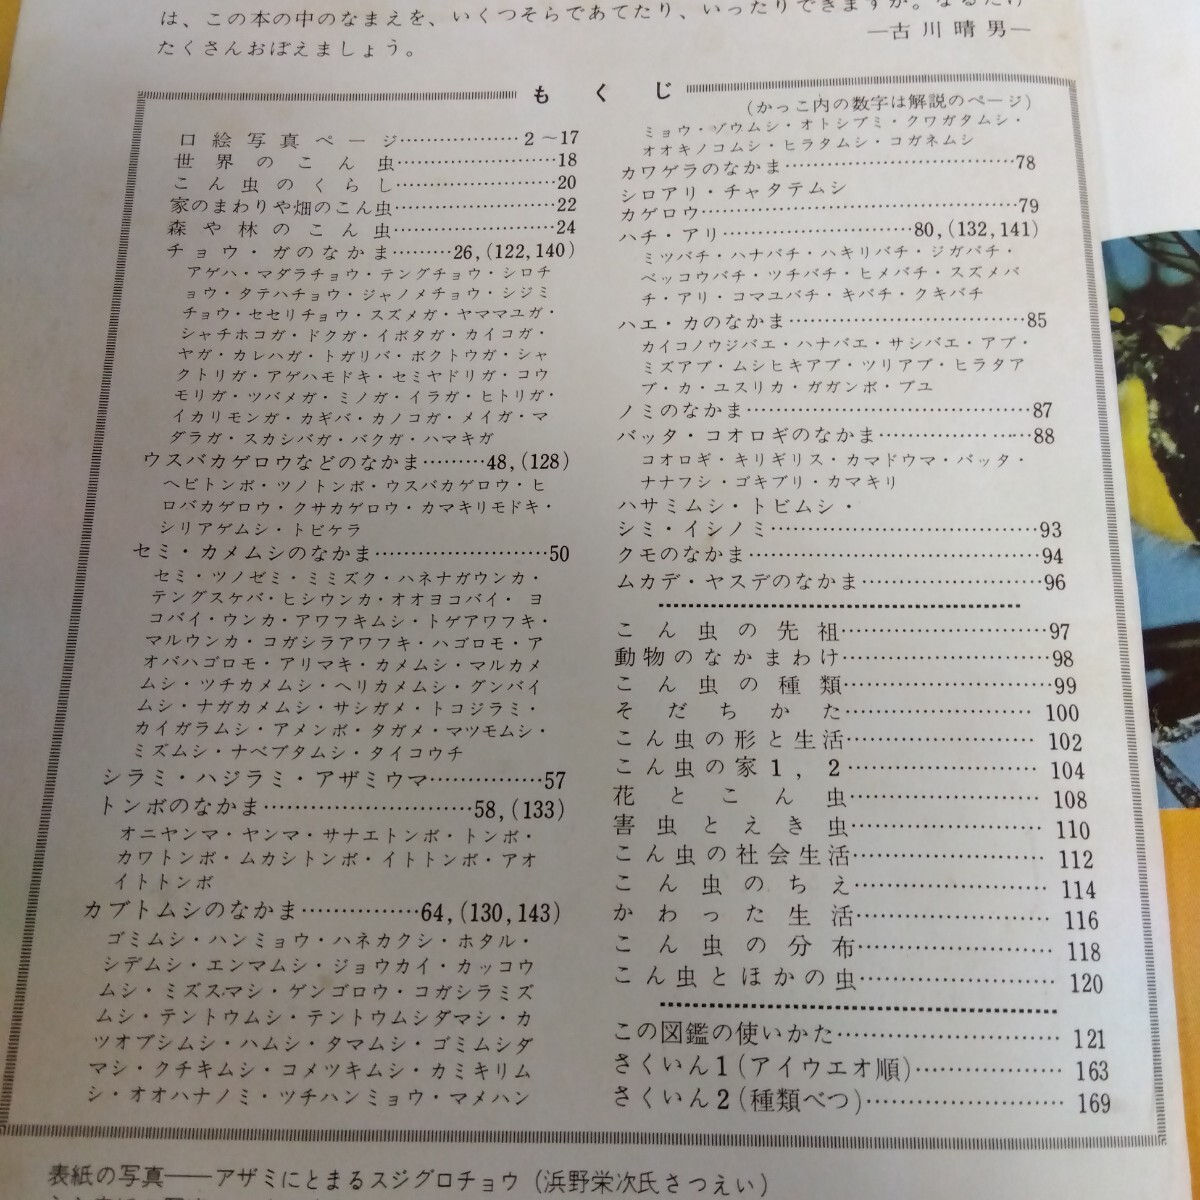 は、この本の中のなまえを、いくつそらであてたり、いったりできますか。なるたけ
たくさんおぼえましょう。
―古川晴男―
もくじ
(かっこ内の数字は解説のページ)
口絵写真ページ…………………2～17
世界のこん虫……………………18
こん虫のくらし……………………20
家のまわりや畑のこん虫……………………22
森や林のこん虫……………………24
チョウ・ガのなかま………26,(122,140)
アゲハ・マダラチョウ・テングチョウ・シロチ
ョウ・タテハチョウ・ジャノメチョウ・シジミ
チョウ・セセリチョウ・スズメガ・ヤママユガ・
シャチホコガ・ドクガ・イボタガ・カイコガ・
ヤガ・カレハガ・トガリバ・ボクトウガ・シャ
クトリガ・アゲハモドキ・セミヤドリガ・コウ
モリガ・ツバメガ・ミノガ・イラガ・ヒトリガ・
イカリモンガ・カギバ・カノコガ・メイガ・マ
ダラガ・スカシバガ・バクガ・ハマキガ
ウスバカゲロウなどのなかま………48,(128)
ヘビトンボ・ツノトンボ・ウスバカゲロウ・ヒ
ロバカゲロウ・クサカゲロウ・カマキリモドキ・
シリアゲムシ・トビケラ
セミ・カメムシのなかま……………………50
セミ・ツノゼミ・ミミズク・ハネナガウンカ・
テングスケバ・ヒシウンカ・オオヨコバイ・ヨ
コバイ・ウンカ・アワフキムシ・トゲアワフキ・
マルウンカ・コガシラアワフキ・ハゴロモ・ア
オバハゴロモ・アリマキ・カメムシ・マルカメ
ムシ・ツチカメムシ・ヘリカメムシ・グンバイ
ムシ・ナガカメムシ・サシガメ・トコジラミ・
カイガラムシ・アメンボ・タガメ・マツモムシ・
ミズムシ・ナベブタムシ・タイコウチ
シラミ・ハジラミ・アザミウマ……………57
トンボのなかま………………………58,(133)
オニヤンマ・ヤンマ・サナエトンボ・トンボ・
カワトンボ・ムカシトンボ・イトトンボ・アオ
イトトンボ
カブトムシのなかま……………64,(130,143)
ゴミムシ・ハンミョウ・ハネカクシ・ホタル・
シデムシ・エンマムシ・ジョウカイ・カッコウ
ムシ・ミズスマシ・ゲンゴロウ・コガシラミズ
ムシ・テントウムシ・テントウムシダマシ・カ
ツオブシムシ・ハムシ・タマムシ・ゴミムシダ
マシ・クチキムシ・コメツキムシ・カミキリム
シ・オオハナノミ・ツチハンミョウ・マメハン
ミョウ・ゾウムシ・オトシブミ・クワガタムシ・
オオキノコムシ・ヒラタムシ・コガネムシ
カワゲラのなかま……………………………78
シロアリ・チャタテムシ
カゲロウ………………………………………79
ハチ・アリ………………………80,(132,141)
ミツバチ・ハナバチ・ハキリバチ・ジガバチ・
ベッコウバチ・ツチバチ・ヒメバチ・スズメバ
チ・アリ・コマユバチ・キバチ・クキバチ
ハエ・カのなかま……………………………85
カイコノウジバエ・ハナバエ・サシバエ・アブ・
ミズアブ・ムシヒキアブ・ツリアブ・ヒラタア
ブ・カ・ユスリカ・ガガンボ・ブユ
ノミのなかま…………………………………87
バッタ・コオロギのなかま…………………88
コオロギ・キリギリス・カマドウマ・バッタ・
ナナフシ・ゴキブリ・カマキリ
ハサミムシ・トビムシ・
シミ・イシノミ………………………………93
クモのなかま…………………………………94
ムカデ・ヤスデのなかま……………………96
こん虫の先祖…………………………97
動物のなかまわけ……………………98
こん虫の種類…………………………99
そだちかた……………………100
こん虫の形と生活……………………102
こん虫の家1,2……………………104
花とこん虫……………………108
害虫とえき虫……………………110
こん虫の社会生活……………………112
こん虫のちえ……………………114
かわった生活……………………116
こん虫の分布……………………118
こん虫とほかの虫……………………120
この図鑑の使いかた……………………121
さくいん1(アイウエオ順)………………163
さくいん2(種類べつ)……………………169
表紙の写真――アザミにとまるスジグロチョウ(浜野栄次氏さつえい)